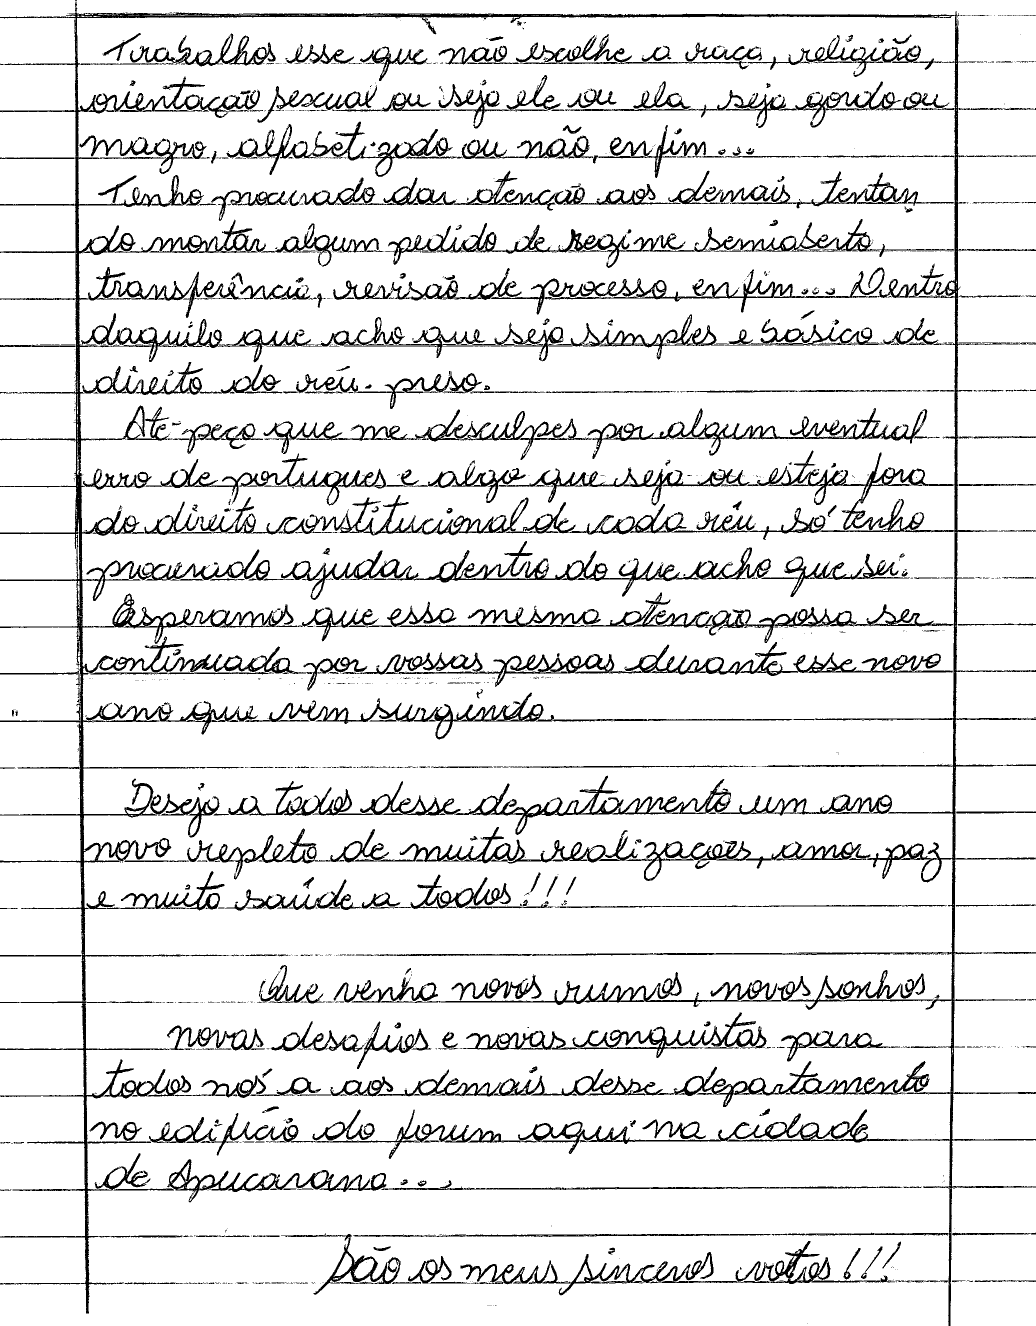 Trabalhos esse que não escolhe a raça, religião,
orientação sexual ou seja ele ou ela, seja gordo ou
magro, alfabetizado ou não, enfim...
Tenho procurado dar atenção aos demais, tentan
do montar algum pedido de regime semiaberto,
transferência, revisão de processo, enfim... Dentro
daquilo que acho que seja simples e básico de
direito do réu-preso.
Até peço que me desculpes por algum eventual
erro de portugues e algo que seja ou esteja fora
do direito constitucional de cada réu, só tenho
procurado ajudar dentro do que acho que sei.
Esperamos que essa mesma atenção possa ser
continuada por vossas pessoas durante esse novo
ano que vem surgindo.
Desejo a todos desse departamento um ano
novo repleto de muitas realizações, amor, paz
e muito saúde a todos!!!
Que venha novos rumos, novos sonhos,
novas desafios e novas conquistas para
todos nós a aos demais desse departamento
no edifício do forum aqui na cidade
de Apucarana...
São os meus sinceros votos!!!